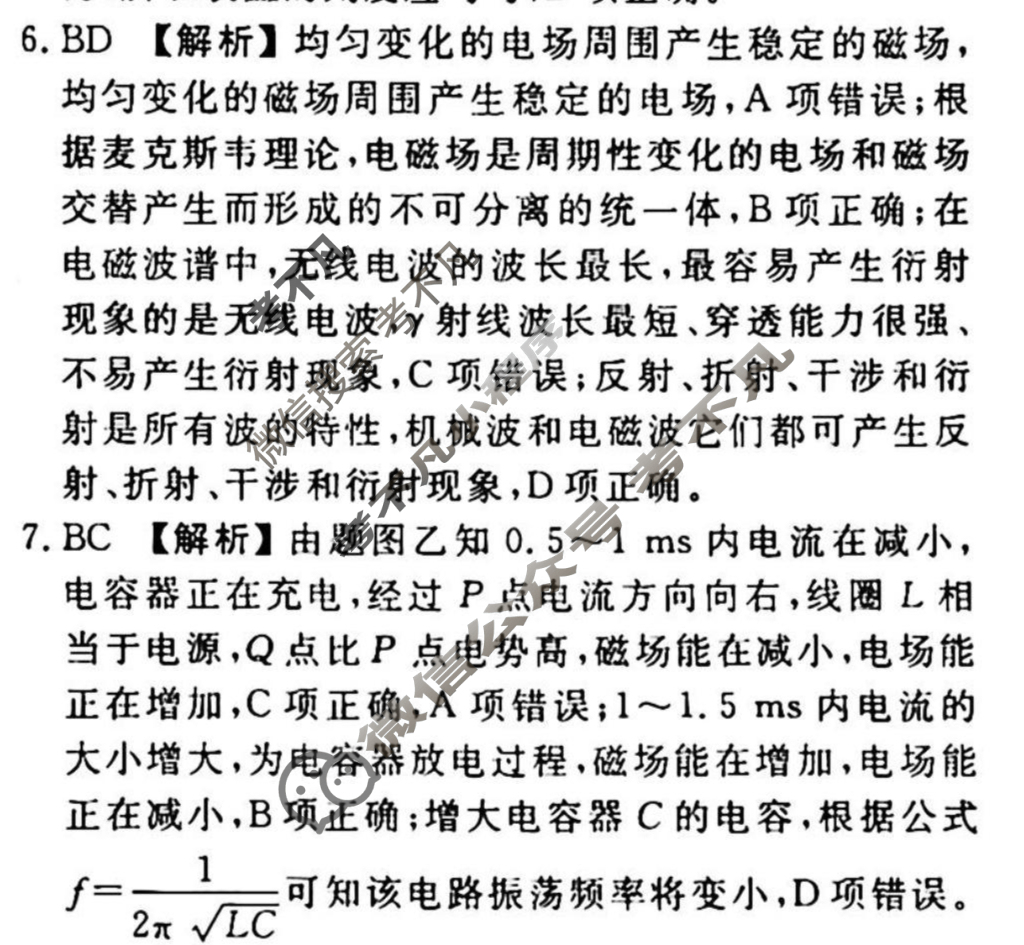 6. BD 【解析】均匀变化的电场周围产生稳定的磁场，
均匀变化的磁场周围产生稳定的电场，A 项错误；根
据麦克斯韦理论，电磁场是周期性变化的电场和磁场
交替产生而形成的不可分离的统一体，B 项正确；在
电磁波谱中，无线电波的波长最长，最容易产生衍射
现象的是无线电波，γ 射线波长最短、穿透能力很强、
不易产生衍射现象，C 项错误；反射、折射、干涉和衍
射是所有波的特性，机械波和电磁波它们都可产生反
射、折射、干涉和衍射现象，D 项正确。
7. BC 【解析】由题图乙知 0.5～1 ms 内电流在减小，
电容器正在充电，经过 P 点电流方向向右，线圈 L 相
当于电源，Q 点比 P 点电势高，磁场能在减小，电场能
正在增加，C 项正确，A 项错误；1～1.5 ms 内电流的
大小增大，为电容器放电过程，磁场能在增加，电场能
正在减小，B 项正确；增大电容器 C 的电容，根据公式
f=1/(2π √LC)可知该电路振荡频率将变小，D 项错误。
考不凡
微信搜索考不凡
考不凡小程序
微信公众号 考不凡